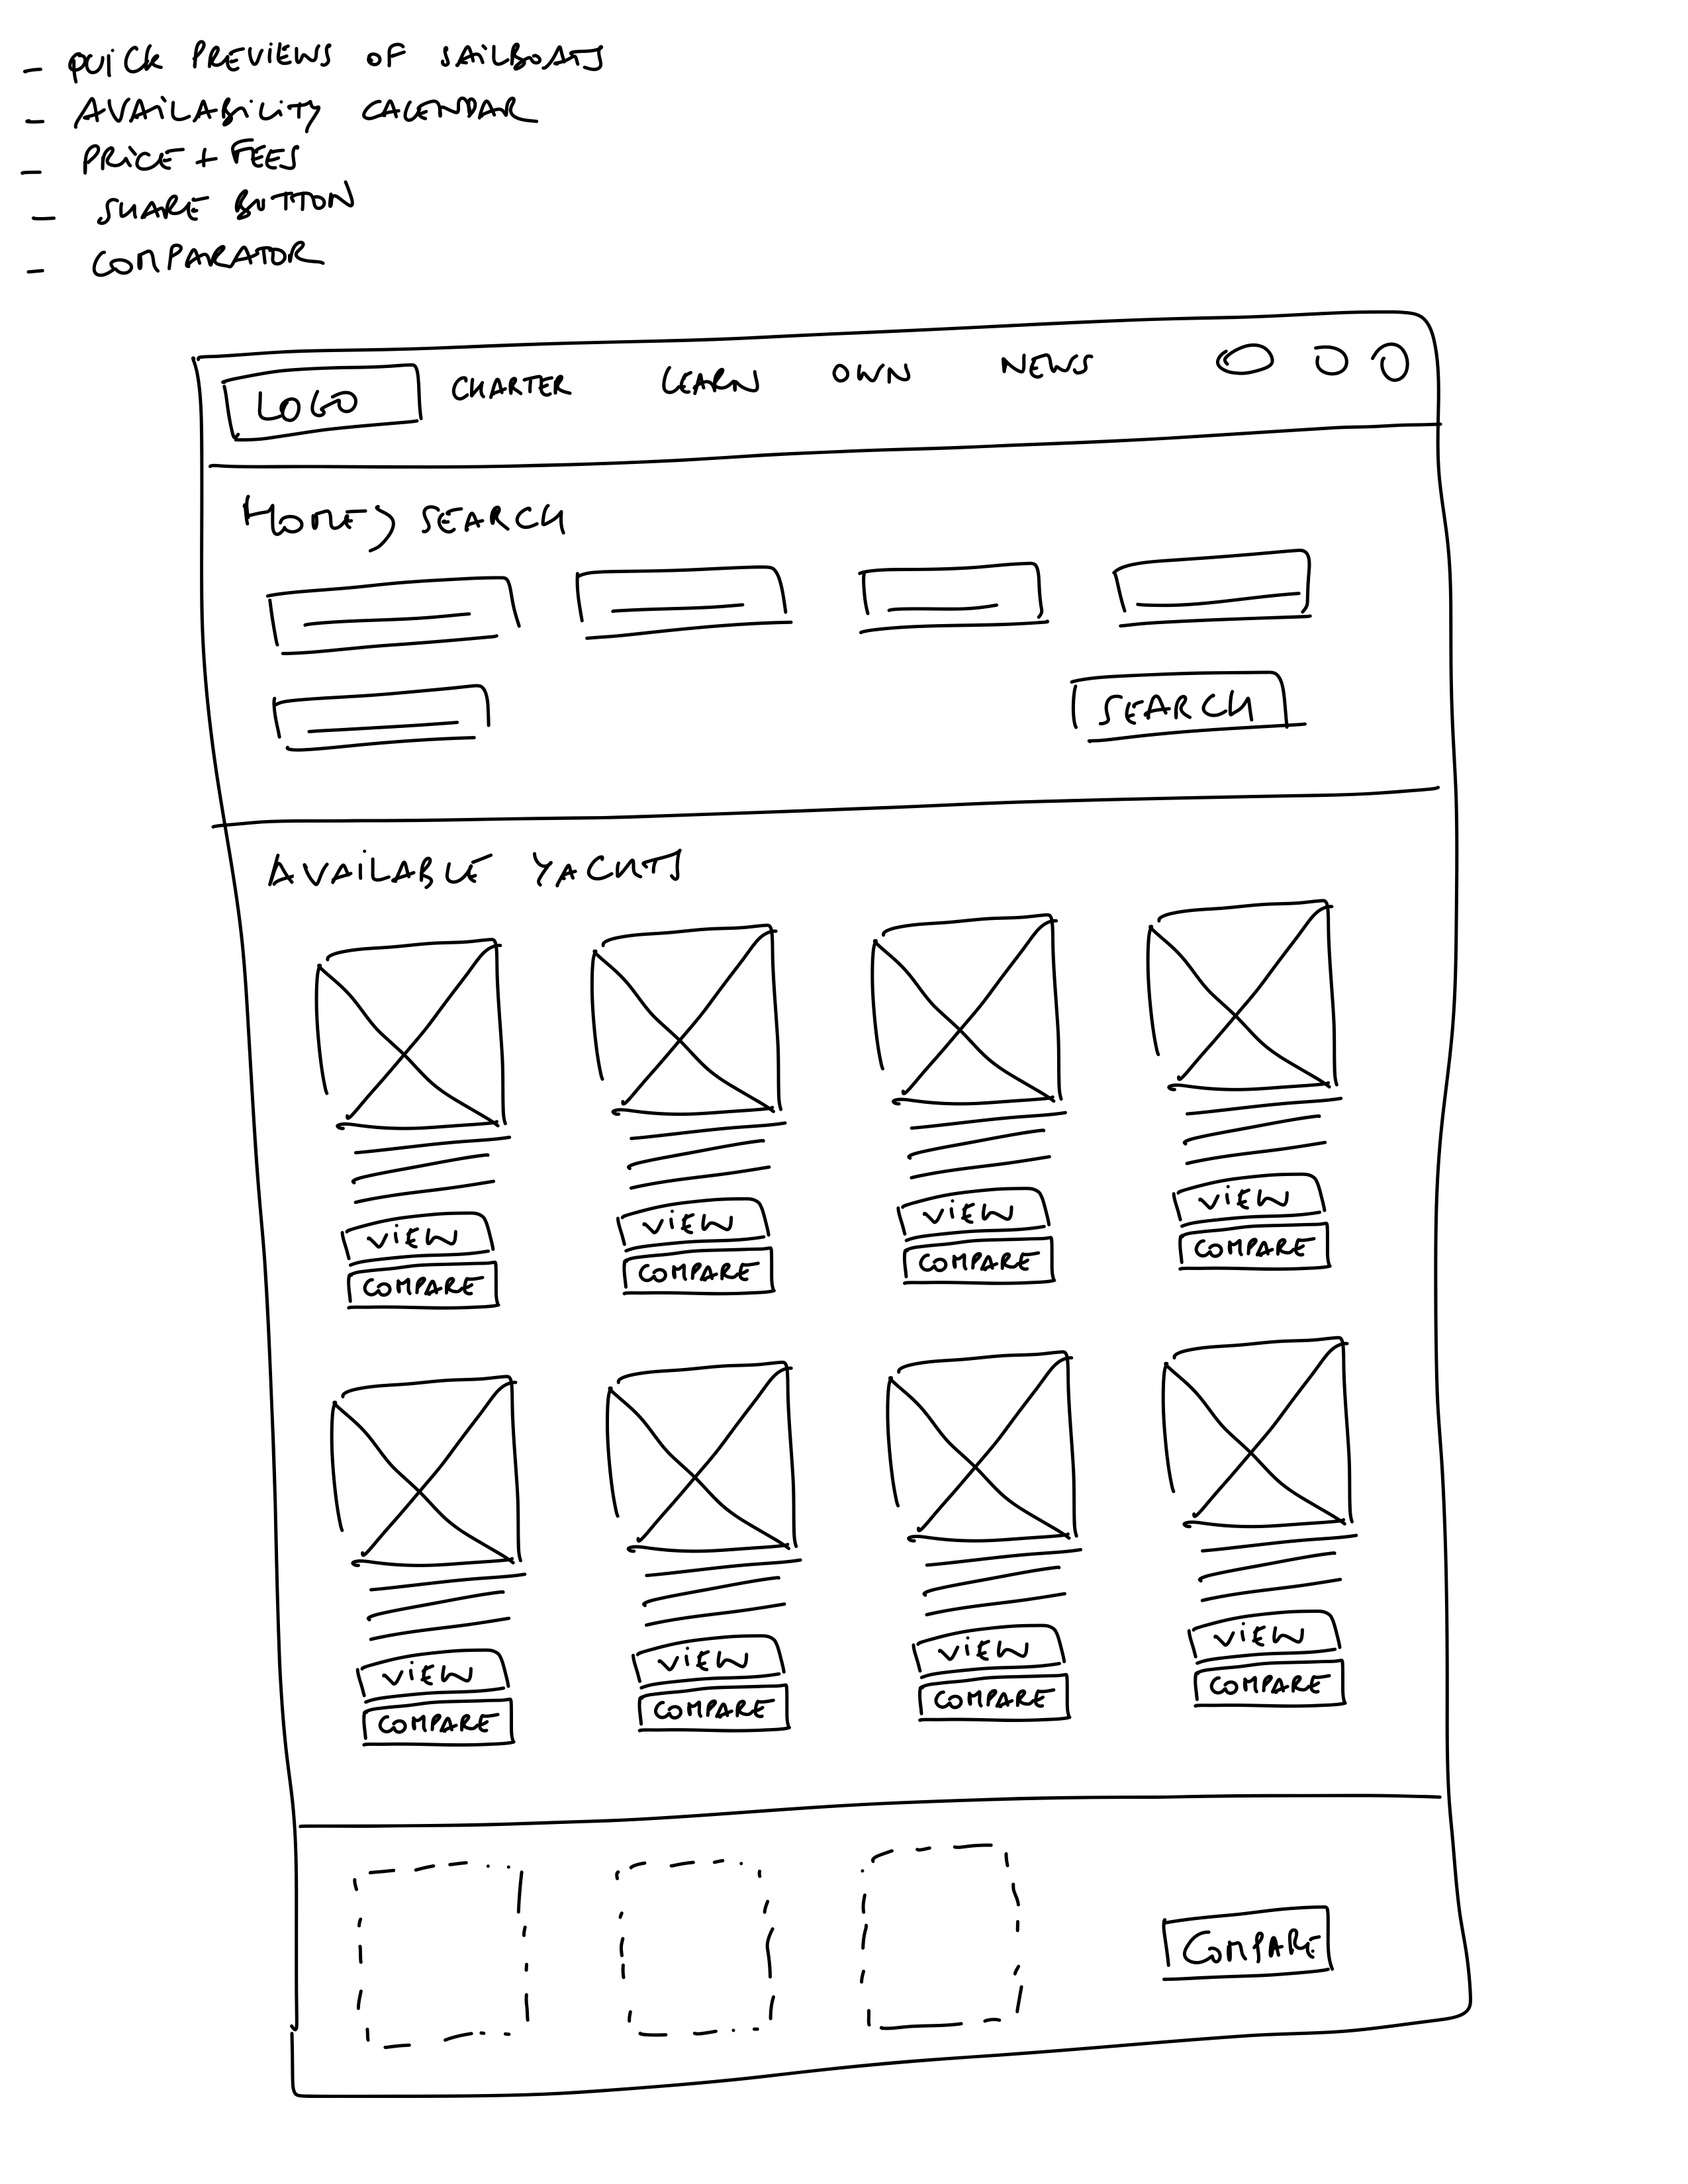 - QUICK PREVIEWS OF SAILBOATS
- AVAILABILITY CALENDAR
- PRICE + FEES
- SHARE BUTTON
- COMPARATOR
LOGO CHARTER LEARN OWN NEWS
HOME > SEARCH
SEARCH
AVAILABLE YACHTS
VIEW VIEW VIEW VIEW
COMPARE COMPARE COMPARE COMPARE
VIEW VIEW VIEW VIEW
COMPARE COMPARE COMPARE COMPARE
COMPARE